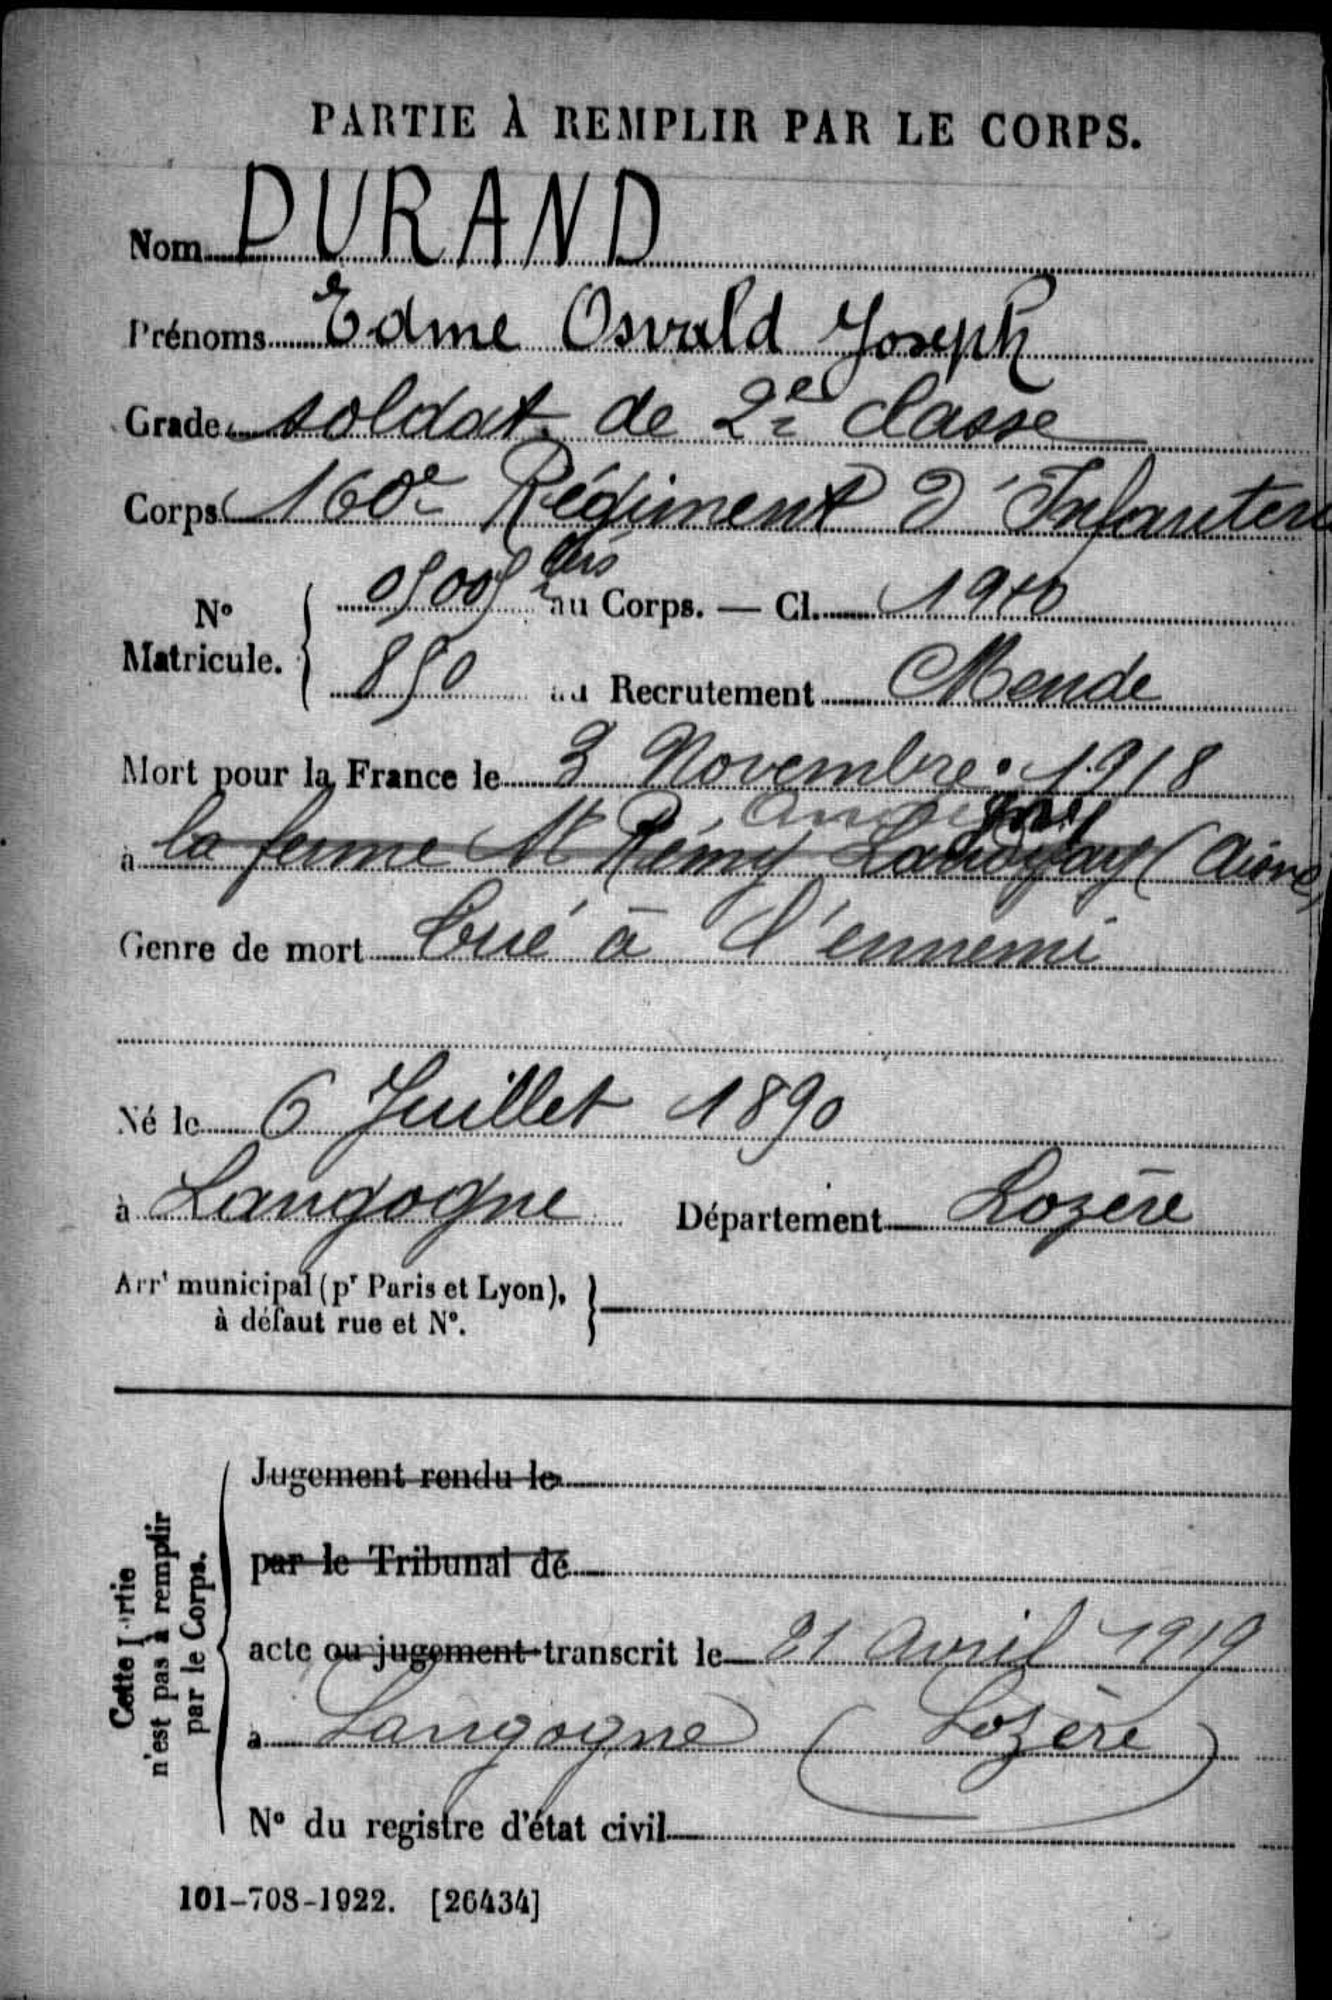 PARTIE À REMPLIR PAR LE CORPS.
Nom DURAND
Prénoms Edme Osvald Joseph
Grade soldat de 2e classe
Corps 160e Régiment d'Infanterie
N° Matricule. { 05005 bis au Corps. — Cl. 1910
850 au Recrutement Mende
Mort pour la France le 3 Novembre 1918
à la ferme St Rémy (Aisne)
Genre de mort Tué à l'ennemi
Né le 6 Juillet 1890
à Langogne Département Lozère
Arrt municipal (pr Paris et Lyon),
à défaut rue et N°.
Cette Partie
n'est pas à remplir
par le Corps.
Jugement rendu le
par le Tribunal de
acte ou jugement transcrit le 21 Avril 1919
à Langogne (Lozère)
N° du registre d'état civil
101-708-1922. [26434]